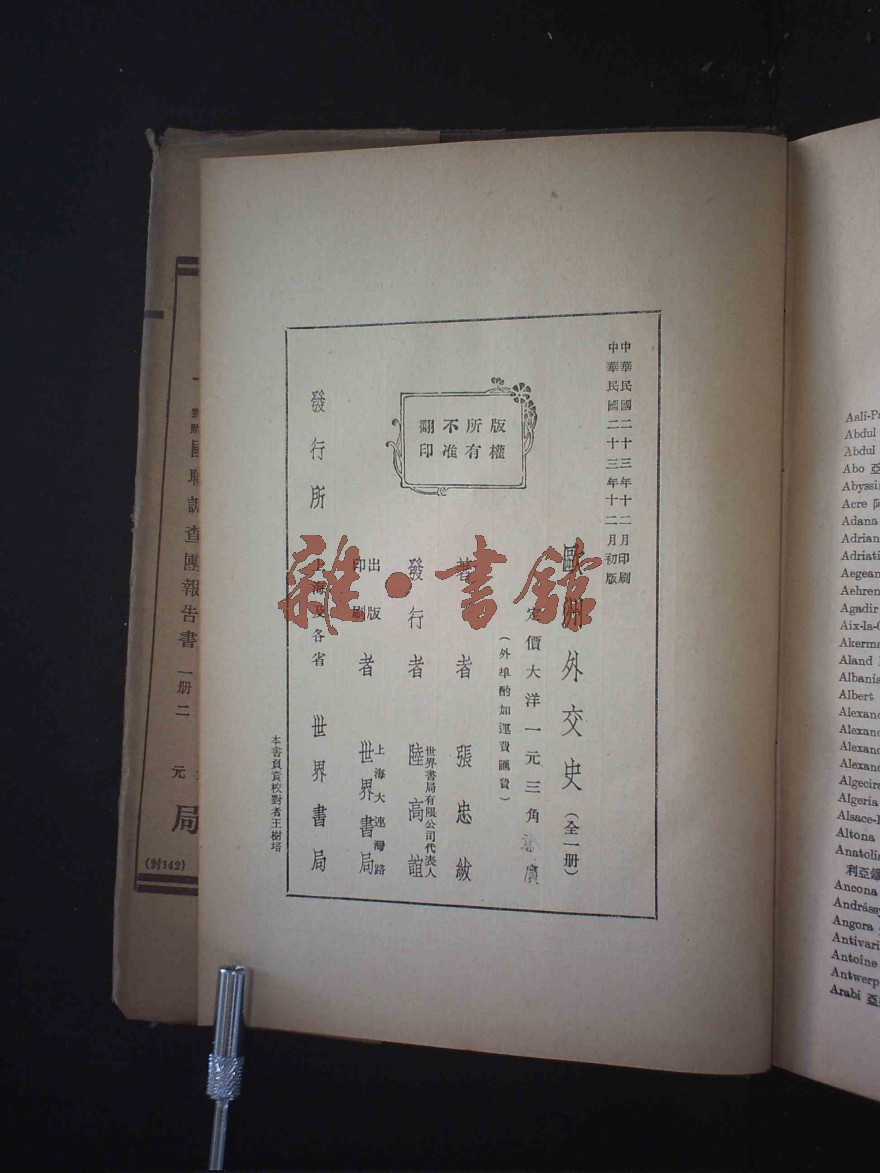 中華民國二十三年十二月印刷
中華民國二十三年十二月初版
歐洲外交史（全一册）
定價大洋一元三角
（外埠酌加運費匯費）
著者 張忠紱
發行者 世界書局有限公司代表人 陸高誼
出版印刷者 上海大連灣路 世界書局
發行所 上海及各省 世界書局
版權所有
不准翻印
本書頁責校對者王樹培
雜·書館
國聯調查團報告書 一册二
元
局
(封142)
Aali-Pa
Abdul
Abdul
Abo 亞
Abyssin
Acre 阿
Adana
Adrian
Adriati
Aegean
Aehren
Agadir
Aix-la-C
Akerma
Aland
Albania
Albert
Alexand
Alexand
Alexand
Alexand
Algecira
Algeria
Alsace-L
Altona
Anatolia
利亞鐵
Ancona
Andrássy
Angora
Antivari
Antoine
Antwerp
Arabi 亞